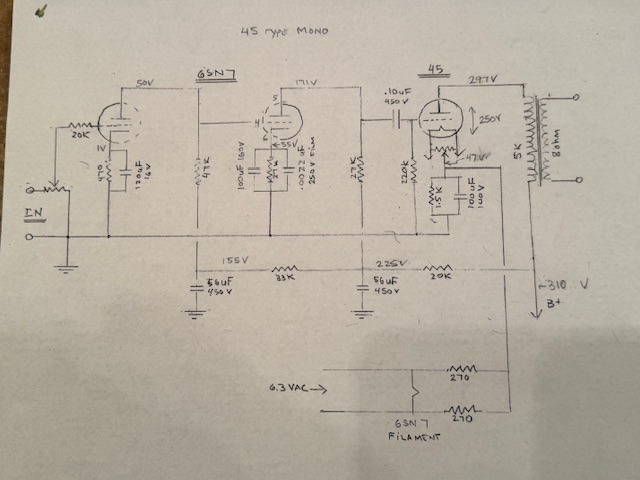 45 TYPE MONO
6SN7
45
50V
171V
297V
.10uF
450V
250V
20K
1K
470
120uF
16V
47K
4
5
55V
100uF 160V
27K
.0022uF
250V Film
27K
220K
47V
1.5K
100uF
100V
5K
8ohm
IN
155V
33K
225V
20K
56uF
450V
56uF
450V
~310 V
B+
6.3VAC→
270
270
6SN7
FILAMENT